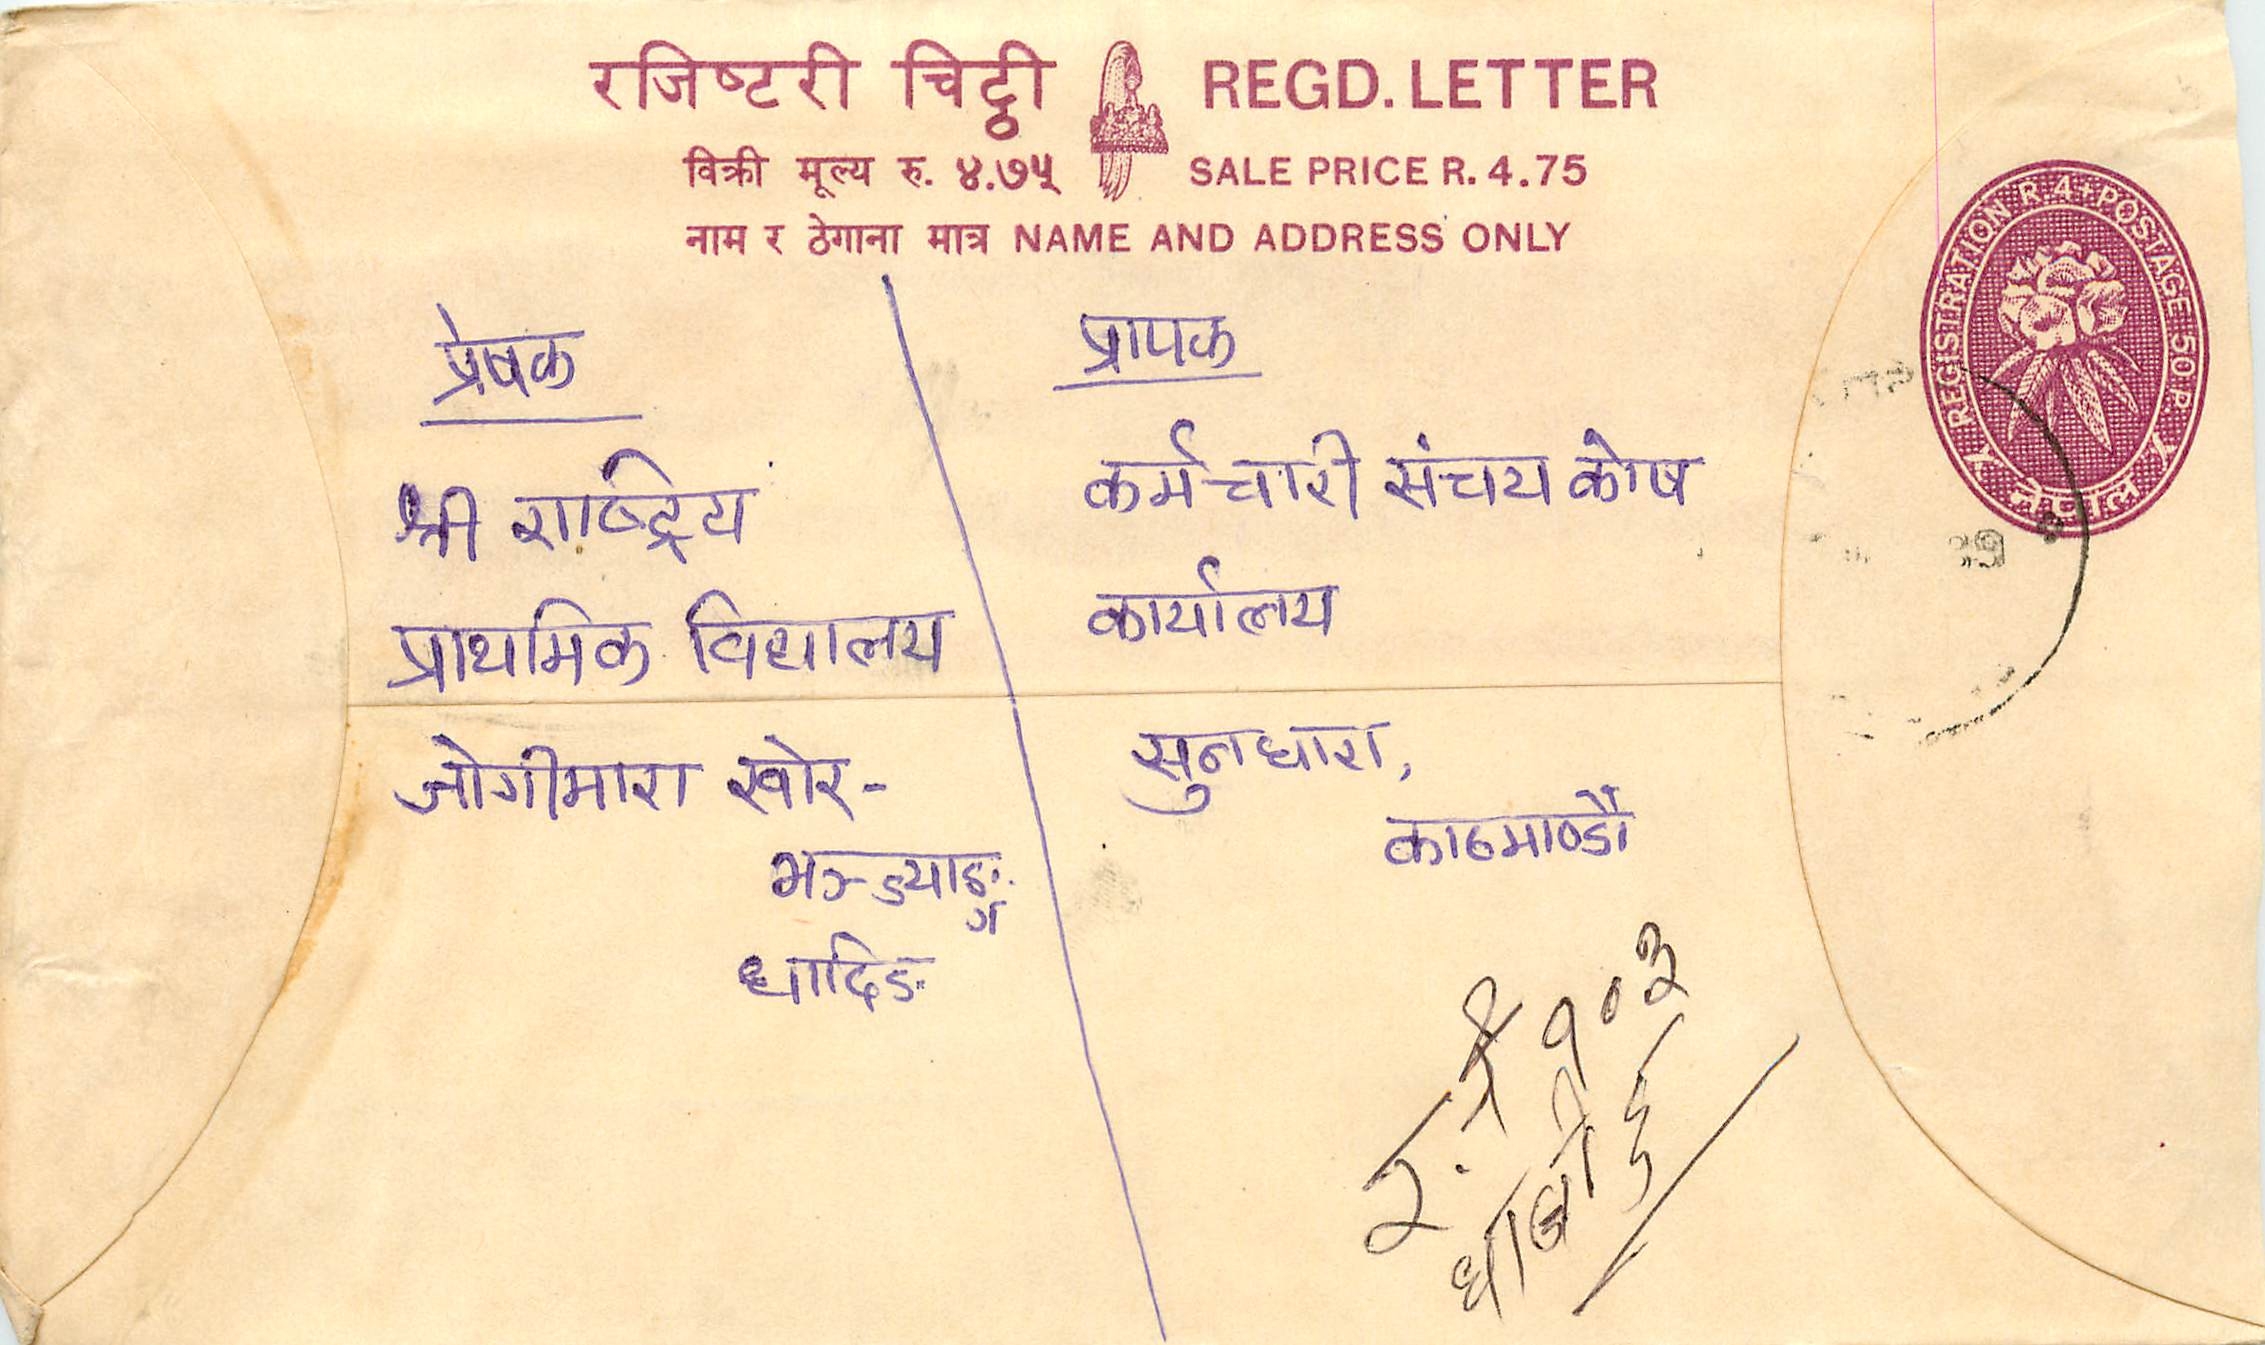 रजिष्टरी चिट्ठी REGD. LETTER
विक्री मूल्य रु. ४.७५ SALE PRICE R. 4.75
नाम र ठेगाना मात्र NAME AND ADDRESS ONLY
REGISTRATION R. 4 + POSTAGE 50 P.
नेपाल
प्रेषक
श्री राष्ट्रिय
प्राथमिक विद्यालय
जोगीमारा खोर-
भञ्ज्याङ्ग
धादिङ
प्रापक
कर्मचारी संचय कोष
कार्यालय
सुनधारा,
काठमाण्डौ
१०३